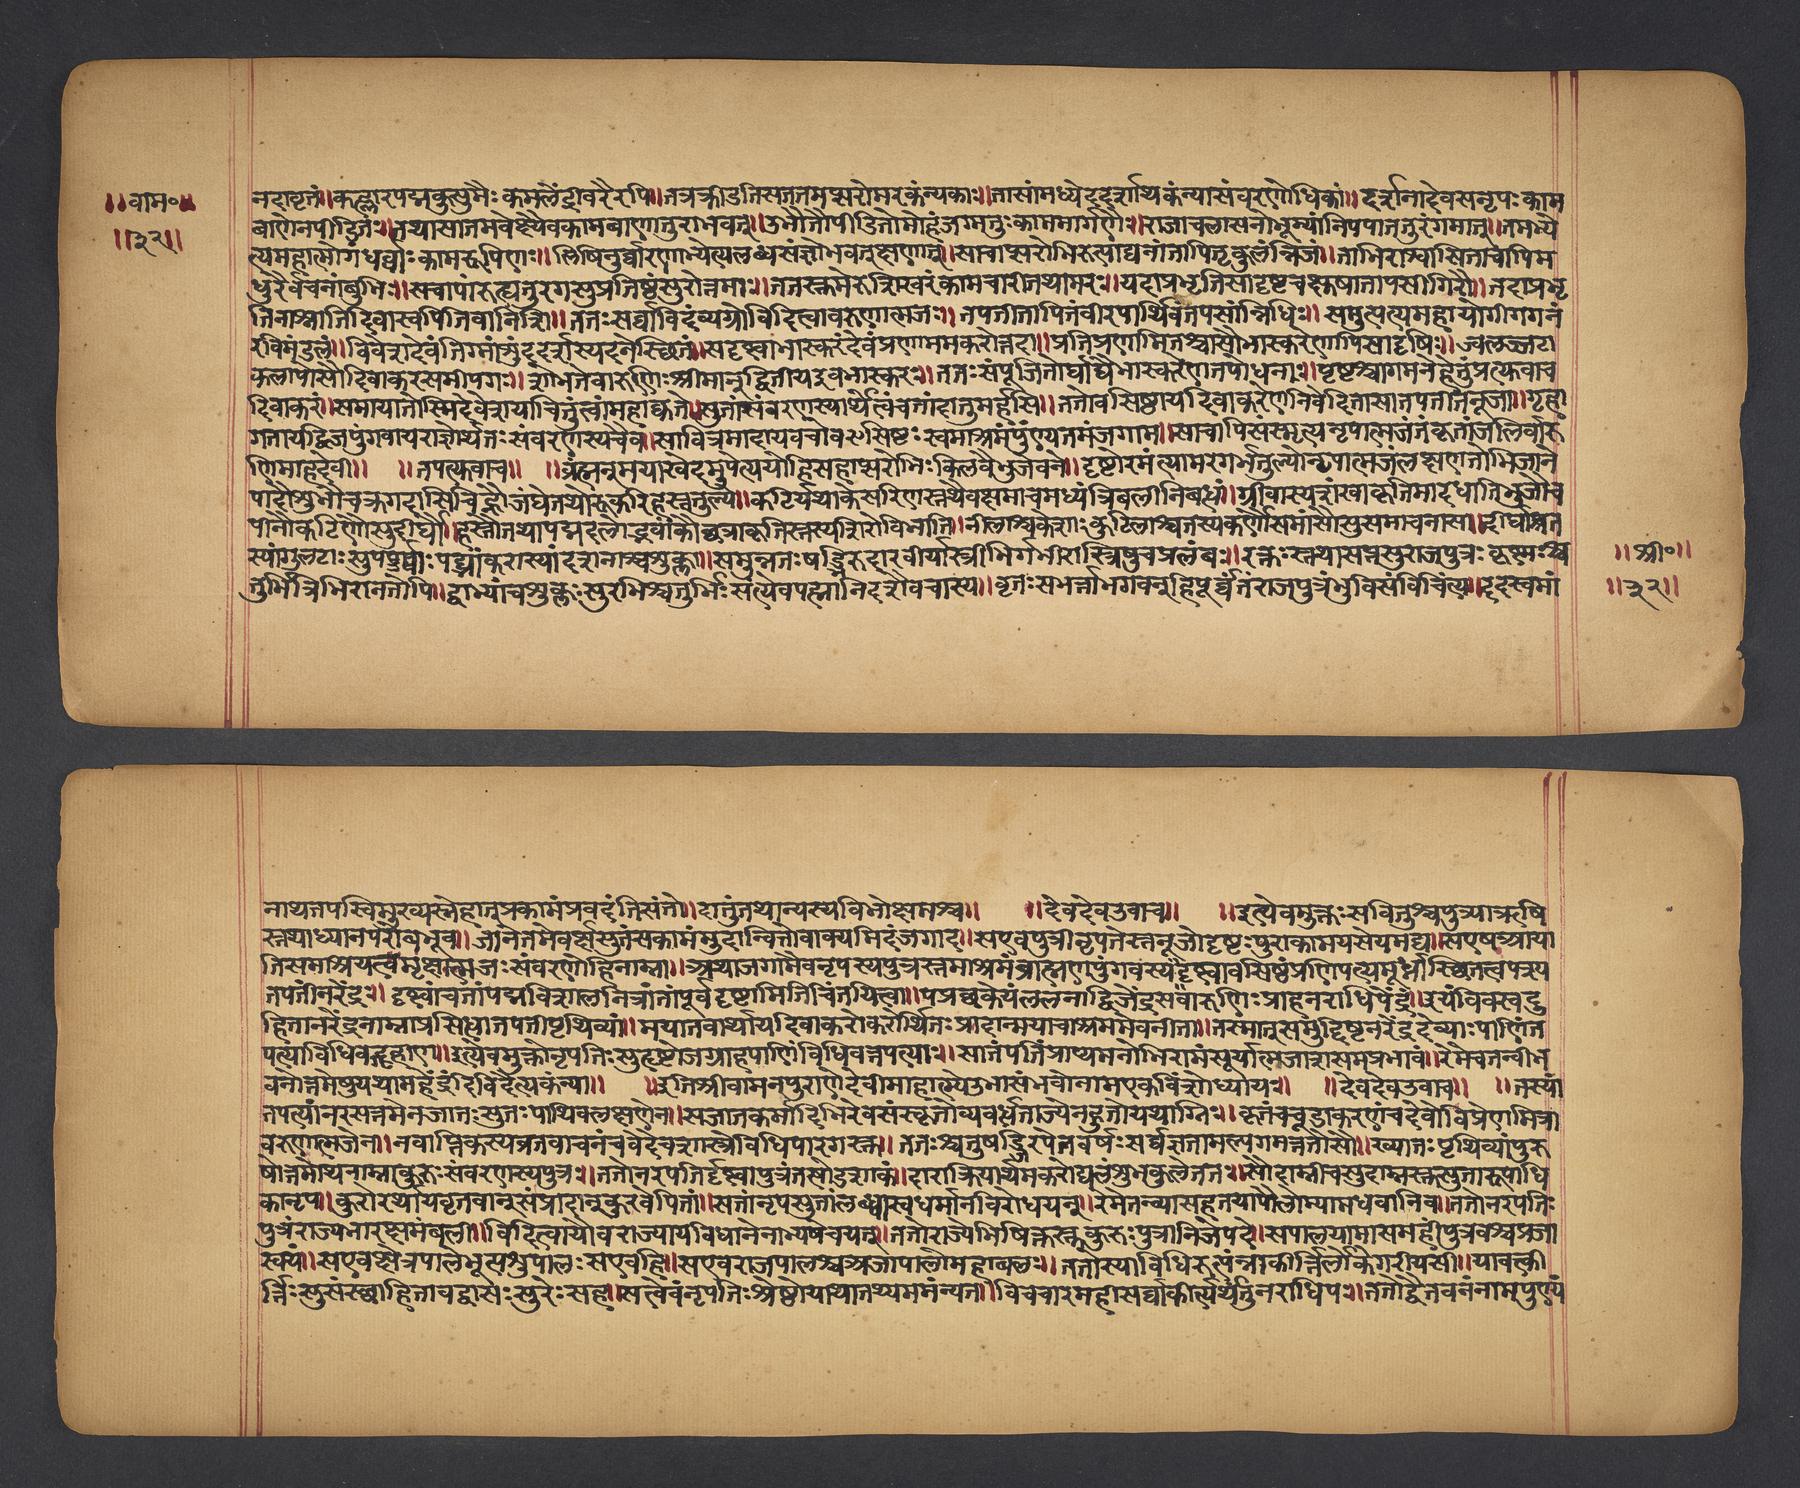 ॥वाम०॥
॥३२॥
नदावृतं॥कह्लारपद्मकुसुमैः कमलेंदीवरैरपि॥तत्रक्रीडतिसततमप्सरोमरकंन्यकाः॥तासांमध्येददर्शाथकंन्यासंवरणोधिकां॥दर्शनादेवसनृपःकाम
बाणेनपीडितः॥तथासातमवेक्ष्यैवकामबाणातुराभवत्॥उभौतौपीडितौमोहंजग्मतुःकाममार्गणैः॥राजाचलासनोभूम्यांनिपपाततुरंगमात्॥तमभ्ये
त्यमहात्मोगंधर्वाःकामरूपिणः॥सिषिचुर्वारिणाभ्येत्यलब्धसंज्ञोभवत्क्षणात्॥साचाप्सरोभिरुत्पाद्यनांतापितृकुलंन्निजं॥ताभिराश्वासिताचापिम
धुरैर्वचनांबुभिः॥सचापारुह्यतुरगंसुप्रतिष्ठंसुरोत्तमः॥ततस्तमेरुशिखरंकामचारीतथामरः॥यदाप्रभृतिसादृष्टचक्षुषातापसीगिरौ॥तदाप्रभृ
तिनाश्नातिदिवास्वपितिवानिशि॥ततःसर्वाविदंव्यग्रोविदित्वावरुणात्मजः॥तपतीतापितंवीरपार्थिवंतपसांनिधिः॥समुत्पत्यमहायोगीगगनं
रविमंडलं॥विवेशदेवंतिग्मांशुंददर्शस्यंदनेस्थितं॥सदृष्ट्वाभास्करंदेवंप्रणाममकरोत्तदा॥प्रतिप्रणामितश्चासौभास्करेणापिसादृषिः॥ज्वलज्जटा
कलापोसौदिवाकरसमीपगः॥शोभतेवारुणिःश्रीमान्द्वितीयइवभास्करः॥ततःसंपूजितोर्घार्घैर्भास्करेणतपोधनः॥पृष्टश्चागमनेहेतुंप्रत्युवाच
दिवाकरं॥समायातोस्मिदेवेशयाचितुंत्वांमहाद्युते॥सुतांसंवरणस्यार्थेत्वंचतांदातुमर्हसि॥ततोवसिष्ठायदिवाकरेणनिवेदितासातपतीतनूजा॥गृहा
गतायद्विजपुंगवायराज्ञोर्थतःसंवरणस्यचैव॥सावित्रमादायवचोवसिष्टःस्वमाश्रमंपुंण्यतमंजगाम॥साचापिसंस्मृत्यनृपात्मजंतंकृतांजलिर्वारु
णिमाहदेवी॥ ॥तपत्युवाच॥ ॥ब्रंह्मन्मयाखेदमुपेत्ययोहिसहाप्सरोभिःकिलवैभुजवने॥दृष्टोरमंत्यामरगर्भतुल्योनृपात्मजंलक्षणतोभिजाने
पादौशुभौचक्रगदासिचिह्नौजंघेतथोरूकरिहस्ततुल्ये॥कटिर्यथाकेसरिणस्तथैवक्षामाचमध्यंत्रिबलीनिबद्धां॥ग्रीवास्यशंखाकृतिमादधातिभुजौच
पीनौकठिनौसुदीर्घौ॥हस्तौतथापद्मदलोद्भवांकौछत्राकृतिस्तस्यशिरोविभाति॥नीलाश्चकेशाःकुटिलाश्चतस्यकर्णौसमांसौसुसमाचनासा॥दीर्घाश्चत
स्यांगुलटाःसुपर्वाःपद्भ्यांकराभ्यांदशनाश्चशुक्लाः॥समुन्नतःषड्भिरुदारवीर्यस्त्रिभिर्गभीरस्त्रिषुचप्रलंबः॥रक्तःस्तथासप्तसुराजपुत्रः कृष्णश्च
तुर्भिस्त्रिभिरानतोपि॥द्वाभ्यांचशुक्लःसुरभिश्चतुर्भिःसंत्येवपद्मानिदशैवचास्य॥वृतःसभर्त्ताभगवन्हिपूर्वंतंराजपुत्रंभुविसंविचिंत्य॥ददस्वमां
॥श्री०॥
॥३२॥
नाथतपस्विमुख्यस्नेहात्प्रकामंप्रवदंतिसंतो॥दातुंतथान्यस्यविभोक्षमश्च॥ ॥देवदेवउवाच॥ ॥इत्येवमुक्तःसवितुश्चपुत्र्याऋषि
स्तथाध्यानपरोबभूव॥ज्ञात्वातमेवार्क्षसुतंसकामंमुदान्वितोवाक्यमिदंजगाद॥सएवपुत्रीनृपतेस्तनूजोदृष्टःपुराकामयसेयमद्य॥सएषआया
तिसमाश्रयत्त्वमृक्षात्मजःसंवरणोहिनाम्ना॥अथाजगामैवनृपस्यपुत्रस्तमाश्रमंब्राह्मणपुंगवस्य॥दृष्ट्वावसिष्ठंप्रणिपत्यमूर्ध्नास्थितस्त्वपश्य
त्तपतींनरेंद्रः॥दृष्ट्वाचतांपद्मविशालनेत्रांतांपूर्वदृष्टामितिचिंतयित्वा॥पप्रच्छकेयंललनाद्विजेंद्रसवारुणिःप्राहनराधिपेंद्रं॥इयंविवस्वद्दु
हितानरेंद्रनाम्नाप्रसिद्धातपतीपृथिव्यां॥मयातवार्थायदिवाकरोकरोर्थितःप्रादान्मयाचाश्रममेवनीता॥तस्मात्समुत्तिष्ठनरेंद्रदेव्याःपाणिंत
पत्याविधिवद्गृहाण॥इत्येवमुक्तोनृपतिःसुहृष्टोजग्राहपाणिंविधिवत्तपत्याः॥सातंपतिंप्राप्यमनोभिरामंसूर्यात्मजाशक्रसमप्रभावं॥रेमेचतन्वीभ
वनोत्तमेषुयथामहेंद्रंदिविदैत्यकंन्या॥ ॥इतिश्रीवामनपुराणेदेवीमाहात्म्येउमासंभवोनामएकविंशोध्यायः॥ ॥देवदेवउवाच॥ ॥तस्यां
तपत्यांनरसत्तमेनजातःसुतःपार्थिवलक्षणेन॥सजातकर्मादिभिरेवसंस्कृतोव्यवर्धताज्येनहुतोयथाग्निः॥कृतंचचूडाकरणंचदेवोविप्रेणमित्रा
वरुणात्मजेन॥नवाब्दिकस्यव्रतबंधनंचवेदेचशास्त्रेविधिपारगस्त॥ततःश्चतुषड्भिरपेतवर्षःसर्वज्ञतामत्पगमत्ततोसौ॥ख्यातःपृथिव्यांपुरु
षोत्तमोथनाम्नाकुरुःसंवरणस्यपुत्रः॥ततोनरपतिर्दृष्ट्वापुत्रंतंषोडशाब्दकं॥दारक्रियार्थमकरोद्यत्नंशुभकुलेततः॥सौदाम्नींचसुदाम्नस्तसुतांरूपाधि
कांनृप॥कुरोरर्थायवृतवान्संप्रादान्कुरवेपितां॥सतांनृपसुतांलब्ध्वास्वधर्मानविरोधयन्॥रेमेतन्व्यासहतयापौलोम्यामघवानिव॥ततोनरपतिः
पुत्रंराज्यभारक्षमंबली॥विदित्वायौवराज्यायविधानेनाभ्यषेचयत्॥ततोराज्येभिषिक्तस्तुकुरुःपुत्रोनिजेपदे॥सपालयामासमहींपुत्रवच्चप्रजाः
स्वयं॥सएवक्षेत्रपालोभूत्पशुपालःसएवहि॥सएवराजपालश्चप्रजापालोमहाबलः॥ततोस्याविधिरुत्पन्नाकीर्त्तिर्लोकेगरीयसी॥यावत्की
र्त्तिःसुसंस्थाहितावद्वासःसुरैःसह॥सत्वेवंनृपतिःश्रेष्ठोयाथातथ्यममंन्यत॥विचचारमहींसर्वांकीर्त्यर्थंतुनराधिपः॥ततोद्वैतवनंनामपुण्यं